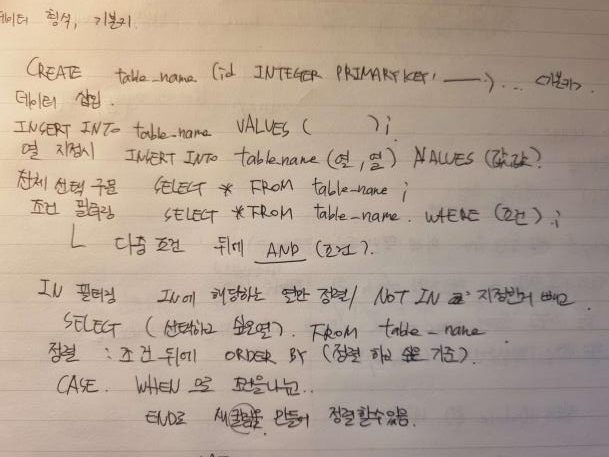 데이터 형식, 기본키.
CREATE table_name (id INTEGER PRIMARY KEY, ... <기본키>
데이터 삽입.
INSERT INTO table_name VALUES ( );
열 지정시 INSERT INTO table name (열, 열) VALUES (값, 값)
전체 선택 구문 SELECT * FROM table_name ;
조건 필터링 SELECT * FROM table_name. WHERE (조건) ;
└ 다중 조건 뒤에 AND (조건).
IN 필터링 IN에 해당하는 열만 정렬 / NOT IN 은 빼고.
SELECT (선택하고 싶은열). FROM table_name
정렬 : 조건 뒤에 ORDER BY (정렬 하고 싶은 기준).
CASE. WHEN 으로 조건을나누고..
END로 새 컬럼을 만들어 정렬할수있음.